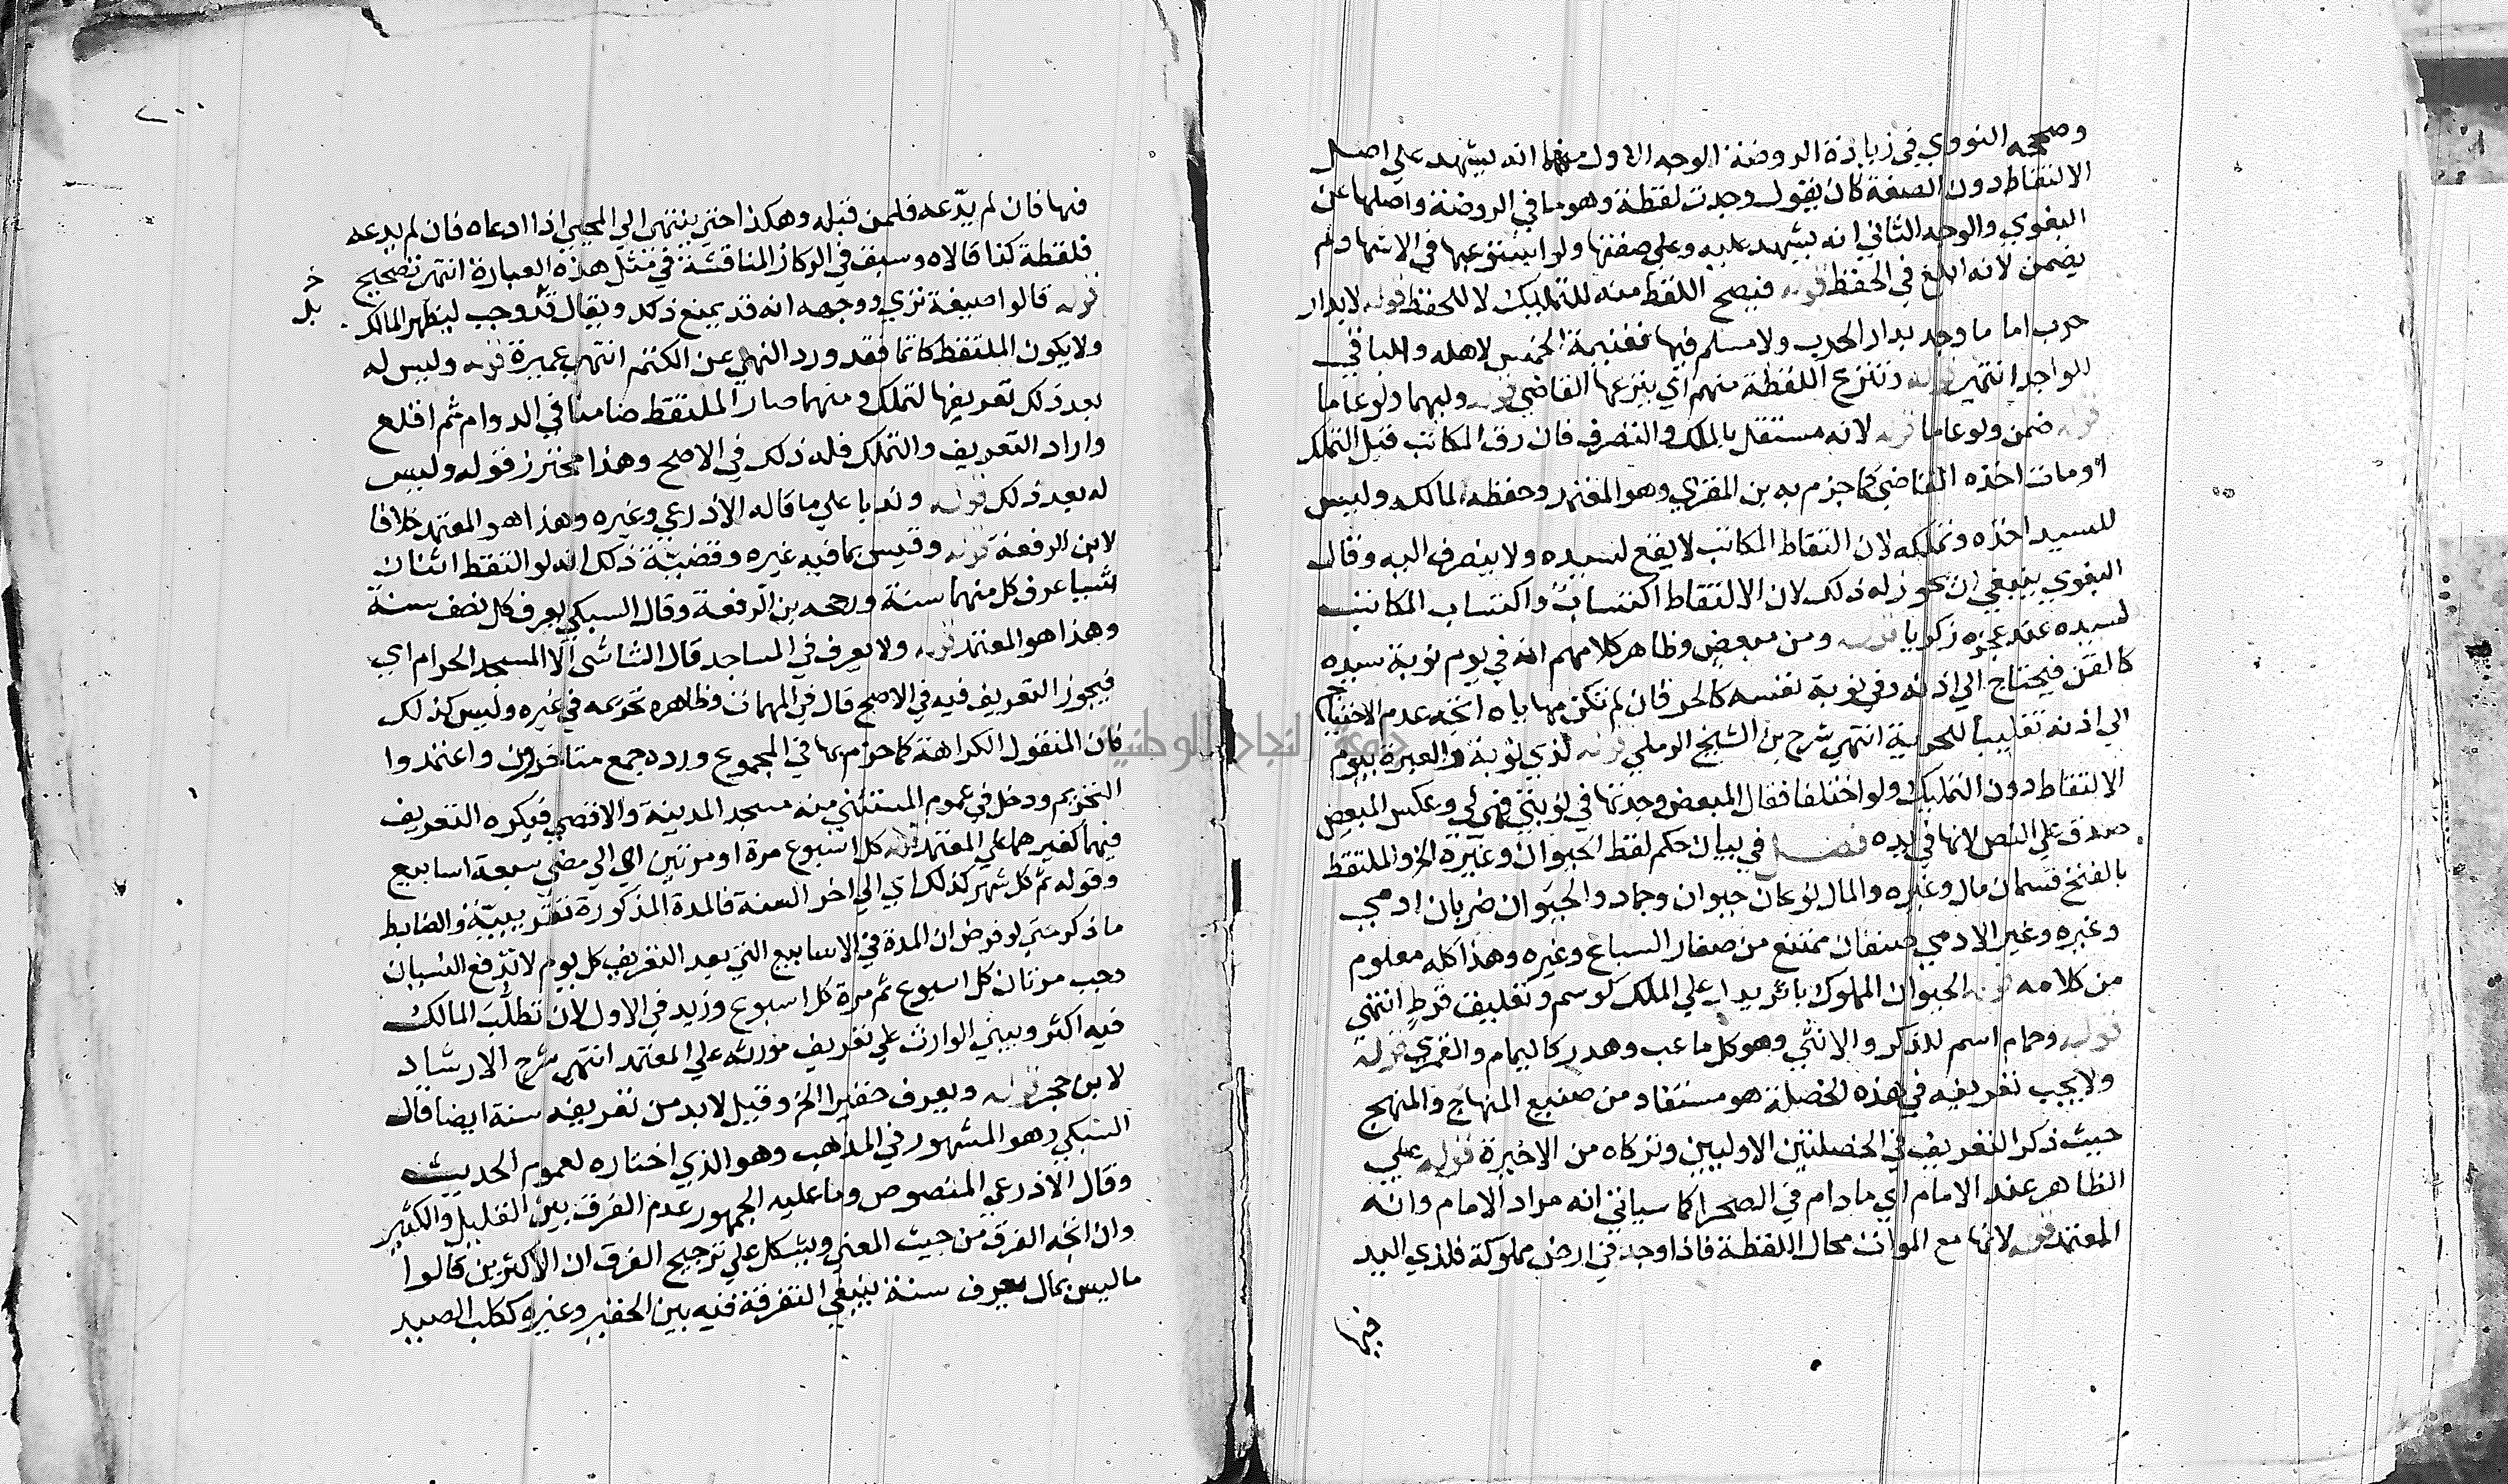 وصححه النووي في زيادة الروضة الوجه الاول منهما انه يشهد علي اصل
الالتقاط دون الصفة كان يقول وجدت لقطة وهو ما في الروضة واصلها عن
البغوي والوجه الثاني انه يشهد عليه وعلي صفتها ولا يستوعبها في الاشهاد ولم
يضمن لانه ابلغ في الحفظ قوله فيصح اللقط منه للتمليك لا للحفظ قوله لا بدار
حرب اما ما وجد بدار الحرب ولا مسلم فيها فغنيمة الخمس لاهله والباقي
للواجد انتهي قوله وتنزع اللقطة منهم اي ينزعها القاضي قوله وليهما ولو عاما
قوله ضمن ولو عاما قوله لانه مستقل بالملك والتصرف فان رق المكاتب قبل التملك
او مات اخذه القاضي كما جزم به بن المقري وهو المعتمد وحفظه لمالكه وليس
للسيد اخذه وتملكه لان التقاط المكاتب لا يقع لسيده ولا ينصرف اليه وقال
البغوي ينبغي ان يجوز له ذلك لان الالتقاط اكتساب واكتساب المكاتب
لسيده عند عجزه زكريا قوله ومن مبعض وظاهر كلامهم انه في يوم نوبة سيده
كالقن فيحتاج الي اذنه وفي نوبة نفسه كالحر فان لم تكن مهاياه اتجه عدم الاحتياج
الي اذنه تغليبا للحرية انتهي شرح بن الشيخ الرملي قوله لذي نوبة والعبرة بيوم
الالتقاط دون التمليك ولو اختلفا فقال المبعض وجدتها في نوبتي فهي لي وعكس المبعض
صدق علي النص لانها في يده فصل في بيان حكم لقط الحيوان وغيره الخ والملتقط
بالفتح قسمان مال وغيره والمال نوعان حيوان وجماد والحيوان ضربان ادمي
وغيره وغير الادمي صنفان ممتنع من صغار السباع وغيره وهذا كله معلوم
من كلامه قوله الحيوان المملوك بان يدل علي الملك كوسم وتعليق قرط انتهي
قوله وحمام اسم للذكر والانثي وهو كل ما عب وهدر كاليمام والقمري قوله
ولا يجب تعريفه في هذه الخصلة هو مستفاد من صنيع المنهاج والمنهج
حيث ذكرا التعريف في الخصلتين الاوليين وتركاه من الاخيرة قوله علي
الظاهر عند الامام اي ما دام في الصحرا كما سياتي انه مراد الامام وانه
المعتمد قوله لانها مع الموات محال اللقطة فاذا وجد في ارض مملوكة فلذي اليد
فيها
٢٠٠
فيها فان لم يدعه فلمن قبله وهكذا حتي ينتهي الي المحيي اذا ادعاه فان لم يدعه
فلقطة كذا قالاه وسبق في الركاز المناقشة في مثل هذه العبارة انتهي تصحيح
قوله قالوا صيغة تبري ووجهه انه قد يمنع ذلك ويقال قد وجب ليظهر المالك
ولا يكون الملتقط كاتما فقد ورد النهي عن الكتم انتهي عميرة قوله وليس له
بعد ذلك تعريفها لتملك ومنهما صار الملتقط ضامنا في الدوام ثم اقلع
واراد التعريف والتملك فله ذلك في الاصح وهذا محترز قوله وليس
له بعد ذلك قوله وندبا علي ما قاله الاذرعي وغيره وهذا هو المعتمد خلافا
لابن الرفعة قوله وقيس بما فيه غيره وقضية ذلك انه لو التقط اثنان
شيا عرف كل منهما سنة ورجحه بن الرفعة وقال السبكي يعرف كل نصف سنة
وهذا هو المعتمد قوله ولا يعرف في المساجد قال الشاشي الا المسجد الحرام اي
فيجوز التعريف فيه في الاصح قال في المهمات وظاهره تحريمه في غيره وليس كذلك
فان المنقول الكراهة كما جزم بها في المجموع ورده جمع متاخرون واعتمدوا
التحريم ودخل في عموم المستثني منه مسجد المدينة والاقصي فيكره التعريف
فيهما كغيرهما علي المعتمد قوله كل اسبوع مرة او مرتين اي الي مضي سبعة اسابيع
وقوله ثم كل شهر كذلك اي الي اخر السنة فالمدة المذكورة تقريبية والضابط
ما ذكر متي لو فرض ان المدة في الاسابيع التي بعد التعريف كل يوم لا تدفع النسيان
وجب مرتان كل اسبوع ثم مرة كل اسبوع وزيد في الاول لان تطلب المالك
فيه اكثر ويبني الوارث علي تعريف مورثه علي المعتمد انتهي شرح الارشاد
لابن حجر قوله ويعرف حقيرا الخ وقيل لا بد من تعريفه سنة ايضا قال
السبكي وهو المشهور في المذهب وهو الذي اختاره لعموم الحديث
وقال الاذرعي المنصوص وما عليه الجمهور عدم الفرق بين القليل والكثير
وان اتجه الفرق من حيث المعني ويشكل علي ترجيح الفرق ان الاكثرين قالوا
ما ليس بمال يعرف سنة ينبغي التفرقة فيه بين الحقير وغيره ككلب الصيد
جامعة النجاح الوطنية